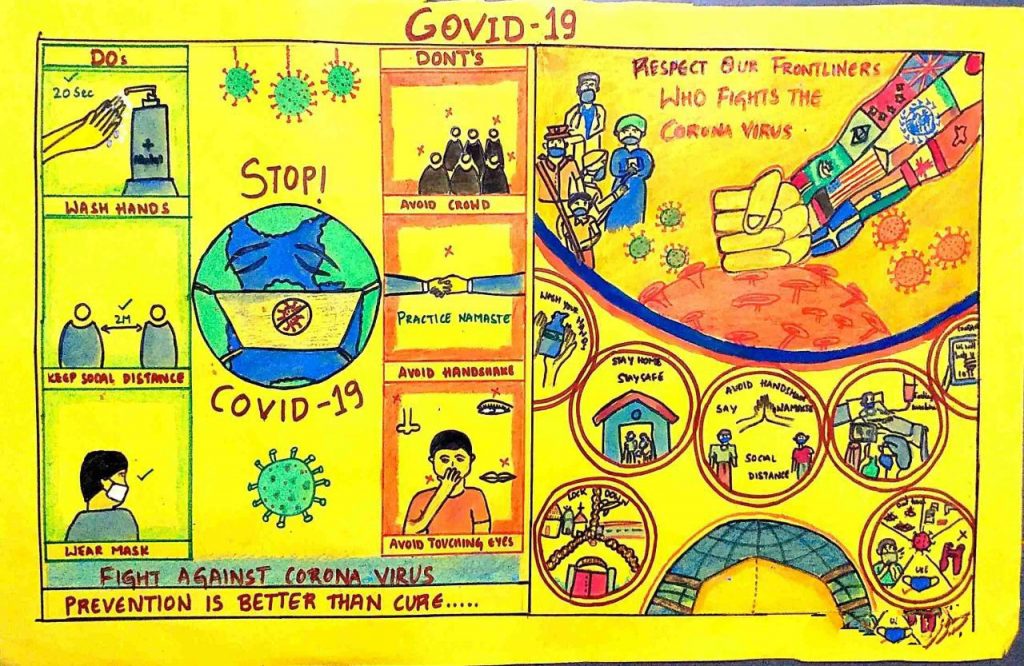 COVID-19
DOs
20 Sec
WASH HANDS
2M
KEEP SOCAL DISTANCE
WEAR MASK
STOP!
COVID-19
DONT'S
AVOID CROWD
PRACTICE NAMASTE
AVOID HANDSHAKE
AVOID TOUCHING EYES
FIGHT AGAINST CORONA VIRUS
PREVENTION IS BETTER THAN CURE.....
RESPECT OUR FRONTLINERS
WHO FIGHTS THE
CORONA VIRUS
WASH YOUR HANDS
STAY HOME
STAY SAFE
AVOID HANDSHAKE
SAY NAMASTE
SOCIAL
DISTANCE
LOCK DOWN
USE